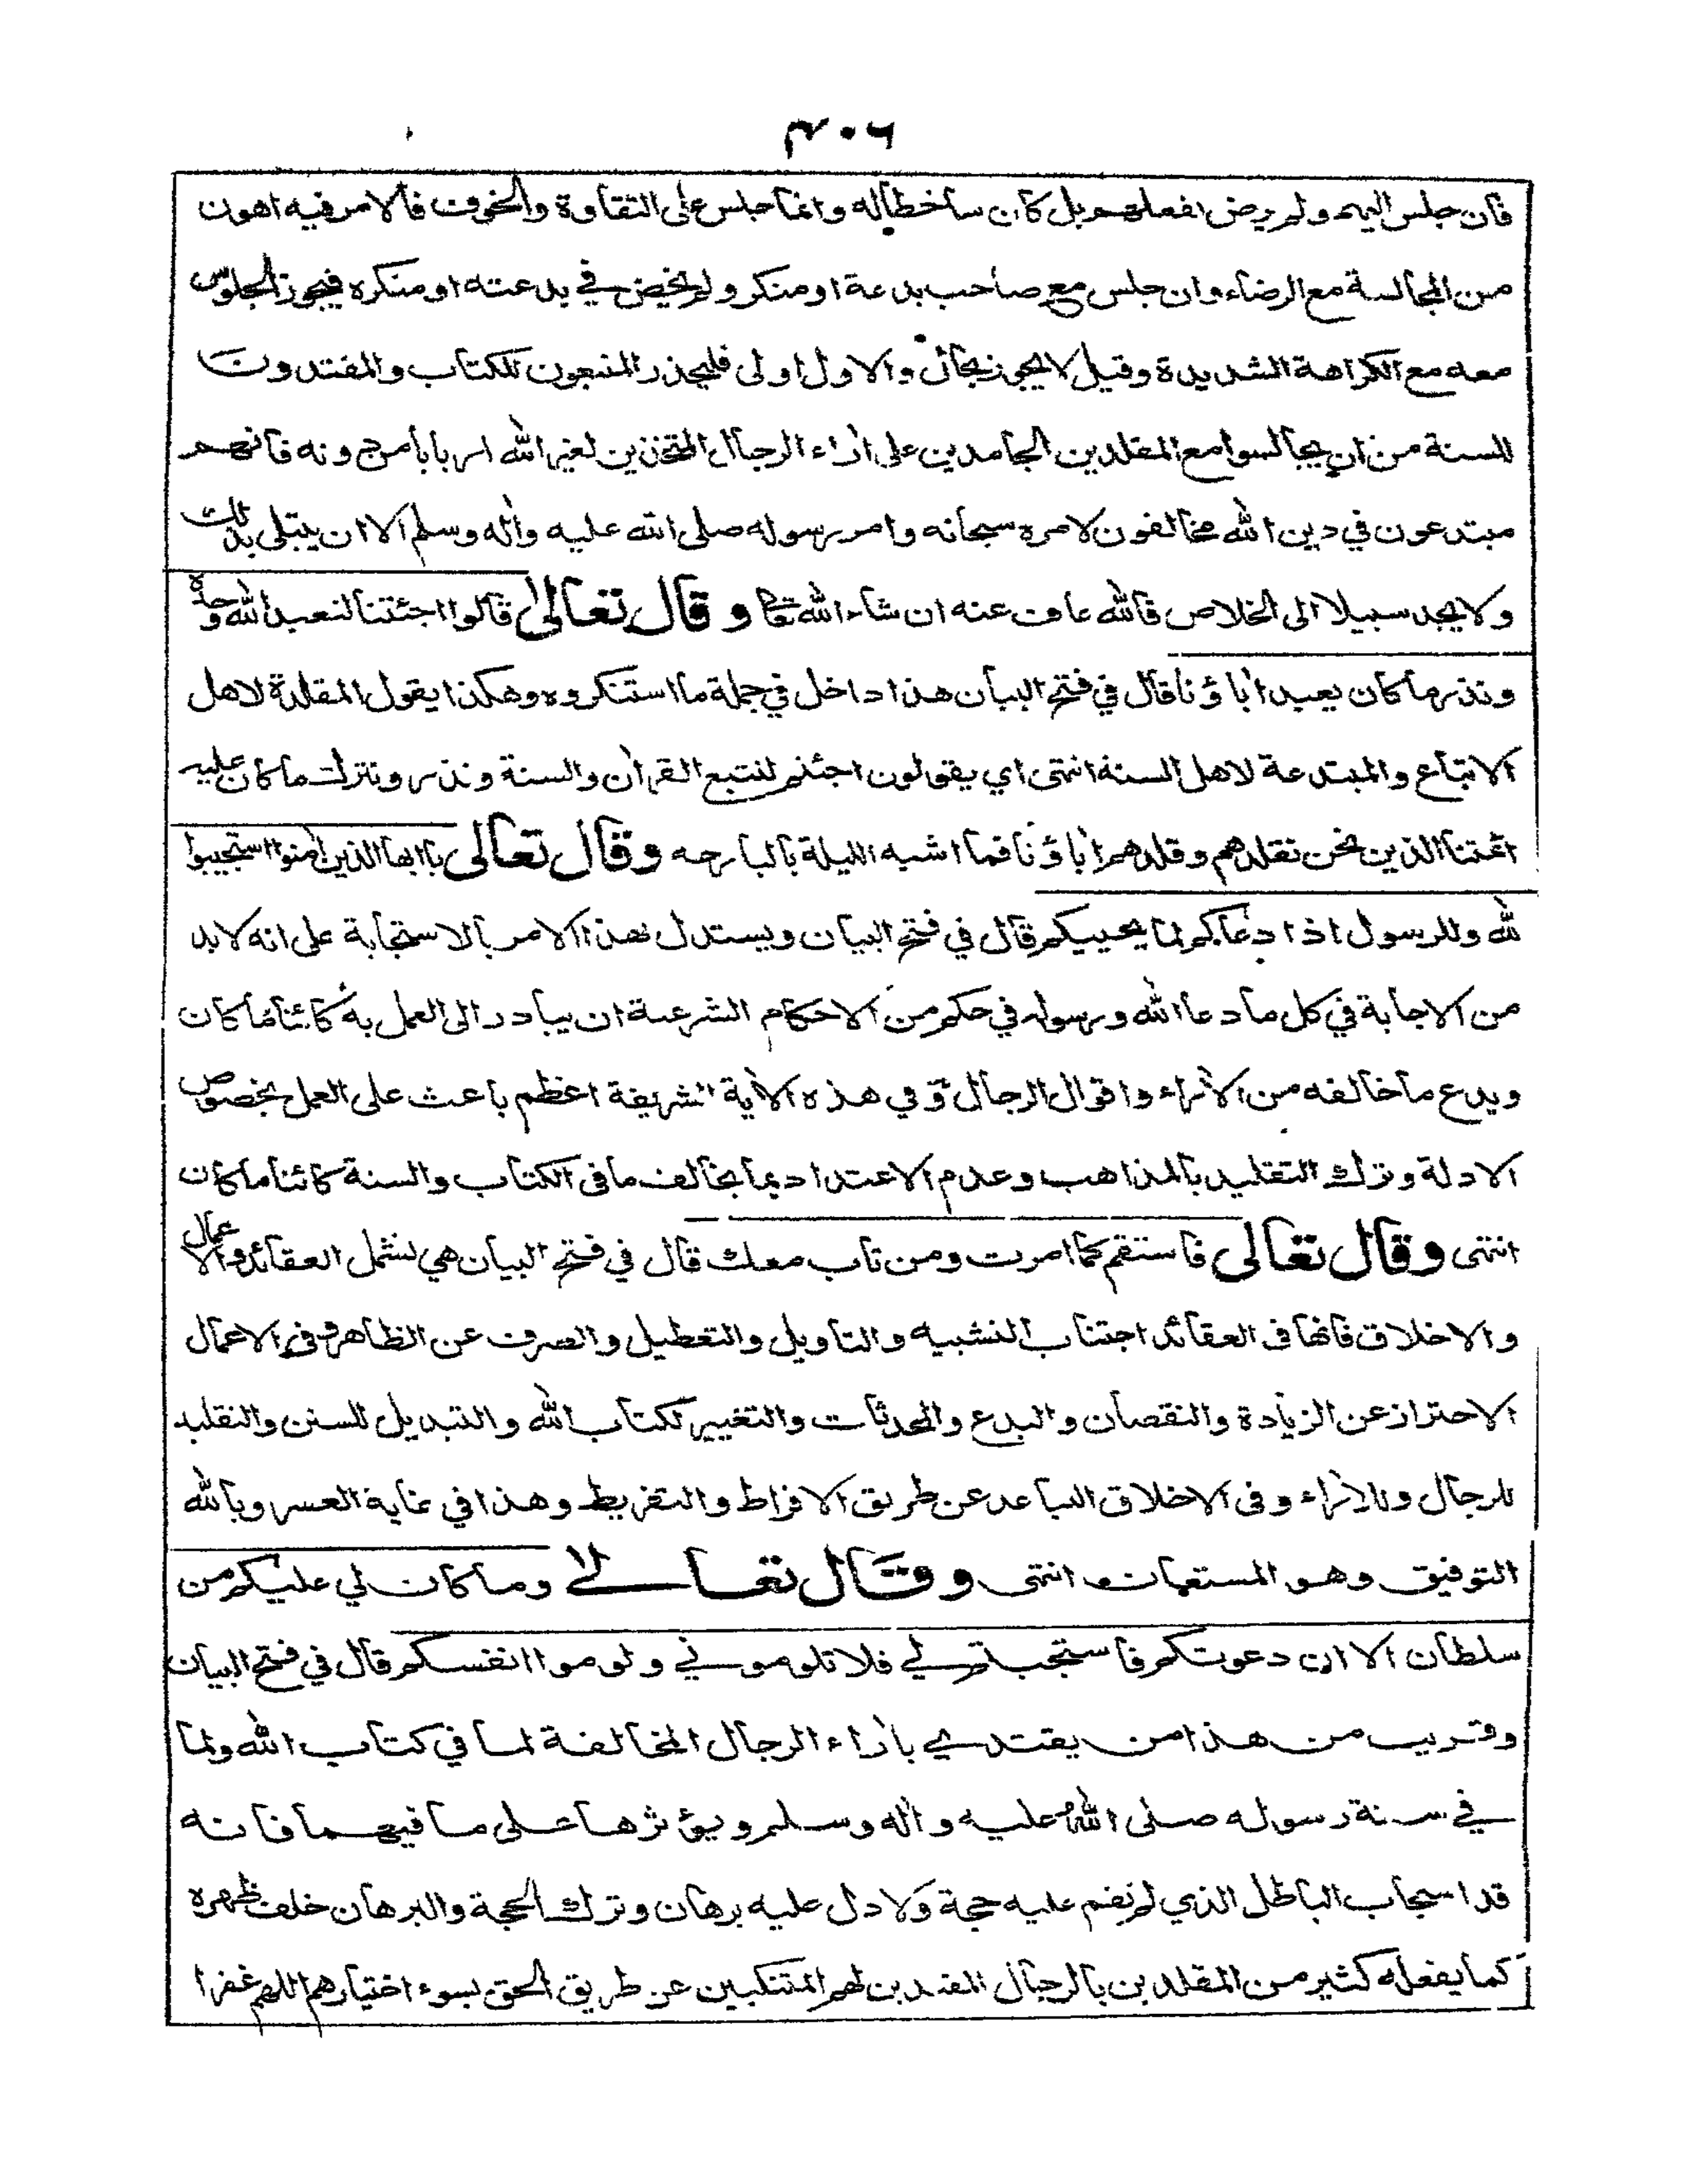 ۴۰۶
فان جلس اليهم ولم يرض بفعلهم بل كان ساخطا له وانما جلس على التقاوة والخوف فالامر فيه اهون
من المجالسة مع الرضاء وان جلس مع صاحب بدعة او منكر ولم يخض في بدعته او منكره فيجوز الجلوس
معه مع الكراهة الشديدة وقيل لا يجوز بحال والاول اولى فليحذر المتبعون للكتاب والمقتدون
للسنة من ان يجالسوا مع المقلدين الجامدين على اٰراء الرجال المتخذين لغير الله اربابا من دونه فانهم
مبتدعون في دين الله مخالفون لامره سبحانه وامر رسوله صلى الله عليه واٰله وسلم الا ان يبتلى بذلك
ولا يجد سبيلا الى الخلاص فالله عاف عنه ان شاء الله تعالى وقال تعالىٰ قالوا اجئتنا لنعبد الله وحده
ونذر ما كان يعبد اٰباؤنا قال في فتح البيان هذا داخل في جملة ما استنكروه وهكذا يقول المقلدة لاهل
الاتباع والمبتدعة لاهل السنة انتهى اي يقولون اجئتم لنتبع القراٰن والسنة ونذر ونترك ما كان عليه
ائمتنا الذين نحن نقلدهم وقلدهم اٰباؤنا فما اشبه الليلة بالبارحه وقال تعالى يا ايها الذين اٰمنوا استجيبوا
لله وللرسول اذا دعاكم لما يحييكم قال في فتح البيان ويستدل بهذا الامر بالاستجابة على انه لابد
من الاجابة في كل ما دعا الله ورسوله في حكم من الاحكام الشرعية ان يبادر الى العمل به كائنا ما كان
ويدع ما خالفه من الاٰراء واقوال الرجال وفي هذه الاٰية الشريفة اعظم باعث على العمل بخصوص
الادلة وترك التقليد بالمذاهب وعدم الاعتداد بما يخالف ما فى الكتاب والسنة كائنا ما كان
انتهى وقال تعالى فاستقم كما امرت ومن تاب معك قال في فتح البيان هي تشمل العقائد والاعمال
والاخلاق فانها فى العقائد اجتناب التشبيه والتاويل والتعطيل والصرف عن الظاهر وفى الاعمال
الاحتراز عن الزيادة والنقصان والبدع والمحدثات والتغيير لكتاب الله والتبديل للسنن والتقليد
للرجال وللاٰراء وفى الاخلاق التباعد عن طريق الافراط والتفريط وهذا في غاية العسر وبالله
التوفيق وهو المستعان انتهى وقال تعالى وما كان لي عليكم من
سلطان الا ان دعوتكم فاستجبتم لي فلا تلوموني ولوموا انفسكم قال في فتح البيان
وقريب من هذا من يقتدي باٰراء الرجال المخالفة لما في كتاب الله ولما
في سنة رسوله صلى الله عليه واٰله وسلم ويؤثرها على ما فيهما فانه
قد استجاب الباطل الذي لم تقم عليه حجة ولا دل عليه برهان وترك الحجة والبرهان خلف ظهره
كما يفعله كثير من المقلدين بالرجال المقتدين لهم المتنكبين عن طريق الحق بسوء اختيارهم اللهم غفرا